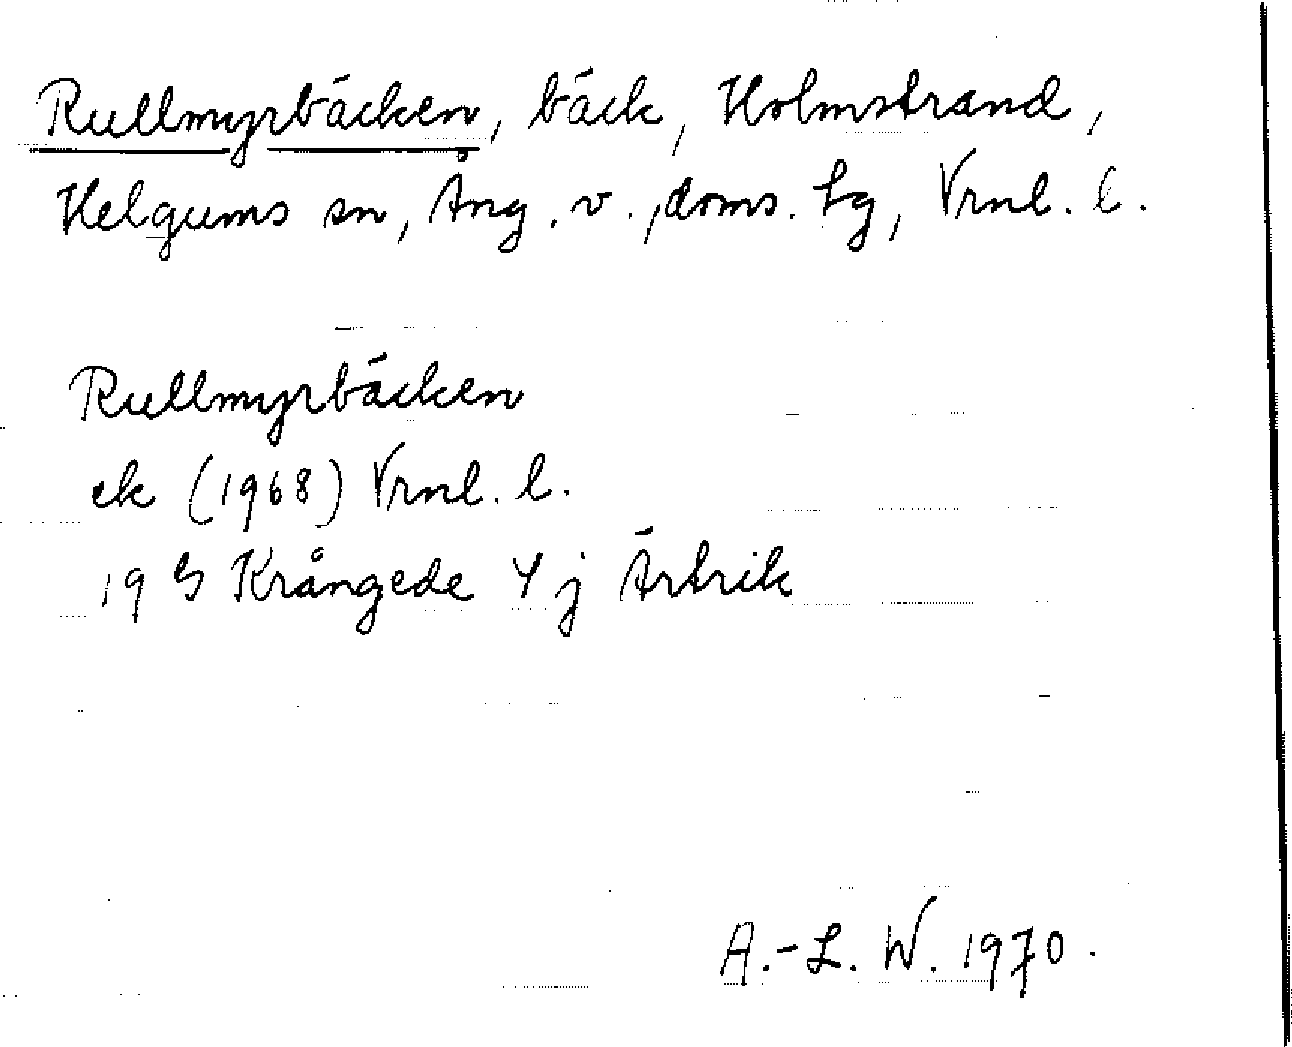 Rullmyrbäcken, bäck, Holmstrand,
Helgums sn, Ång. v., doms. lg, Vrnl. l.
Rullmyrbäcken
ek (1968) Vrnl. l.
19 G Krångede 4 j Ärtrik
A.-L. W. 1970.